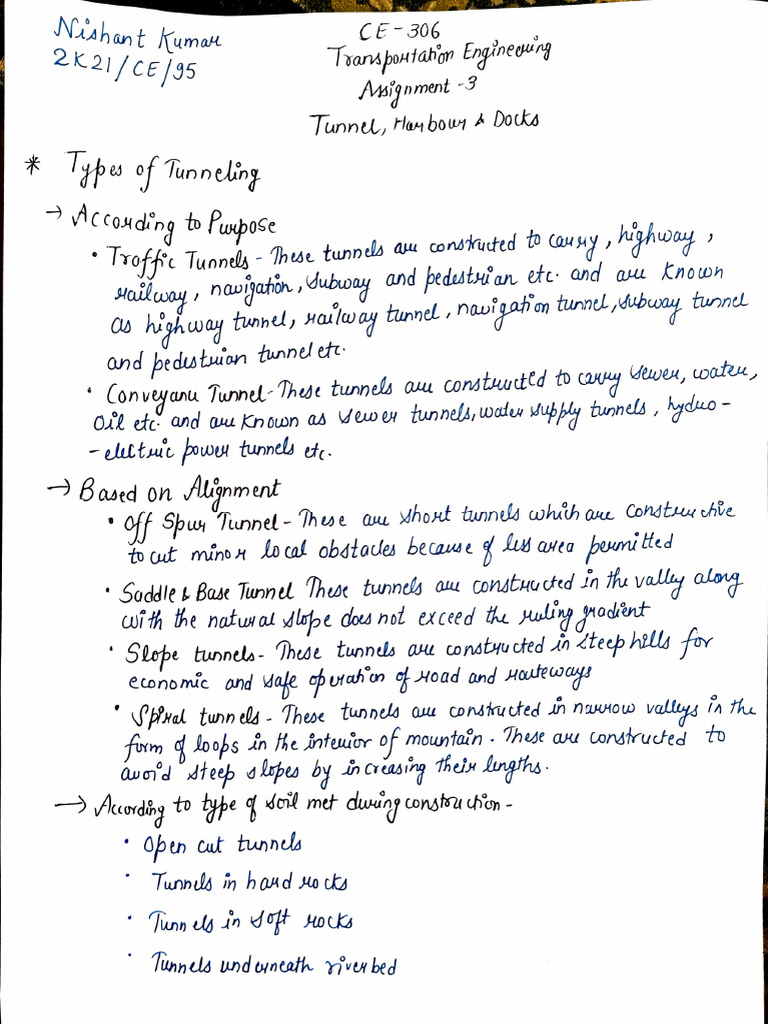 Nishant Kumar
2K21/CE/95
CE-306
Transportation Engineering
Assignment -3
Tunnel, Harbour & Docks
* Types of Tunneling
→ According to Purpose
• Traffic Tunnels - These tunnels are constructed to carry, highway,
railway, navigation, subway and pedestrian etc. and are known
as highway tunnel, railway tunnel, navigation tunnel, subway tunnel
and pedestrian tunnel etc.
• Conveyanu Tunnel - These tunnels are constructed to carry sewer, water,
oil etc. and are known as sewer tunnels, water supply tunnels, hydro-
-electric power tunnels etc.
→ Based on Alignment
• Off Spur Tunnel - These are short tunnels which are constructive
to cut minor local obstacles because of less area permitted
• Saddle & Base Tunnel These tunnels are constructed in the valley along
with the natural slope does not exceed the ruling gradient
• Slope tunnels - These tunnels are constructed in steep hills for
economic and safe operation of road and routeways
• Spiral tunnels - These tunnels are constructed in narrow valleys in the
form of loops in the interior of mountain. These are constructed to
avoid steep slopes by increasing their lengths.
→ According to type of soil met during construction -
• Open cut tunnels
• Tunnels in hard rocks
• Tunnels in soft rocks
• Tunnels underneath riverbed